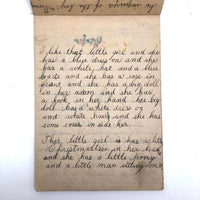 he inquired of the boy
I like that little girl and she
has a blue dress on and she
has a white hat and a blue
beads and she has a rose in
front and she has a big doll
in her arm and she has
a book in her hand her big
doll has a white dress on
and white hair and she has
some in side her.
This little girl is has a
in her hand
and she has a little pony
and a little man sitting on